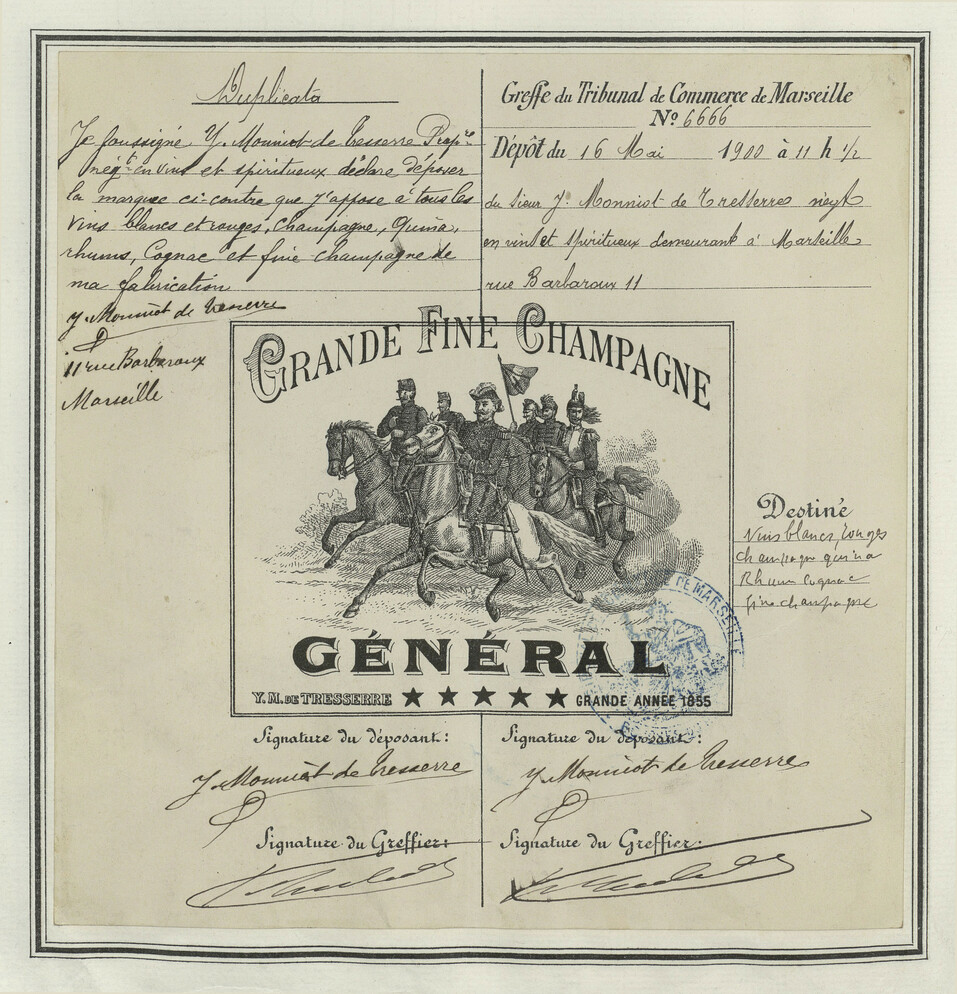 Duplicata
Je soussigné Y. Monniot de Tresserre Propre
négt en vins et spiritueux déclare déposer
la marque ci-contre que j'appose à tous les
vins blancs et rouges, Champagne, Quina,
rhums, Cognac et fine champagne de
ma fabrication
Y. Monniot de Tresserre
11 rue Barbaroux
Marseille
Greffe du Tribunal de Commerce de Marseille
No 6666
Dépôt du 16 Mai 1900 à 11 h 1/2
du sieur Y. Monniot de Tresserre négt
en vins et spiritueux demeurant à Marseille
rue Barbaroux 11
GRANDE FINE CHAMPAGNE
GÉNÉRAL
Y. M. DE TRESSERRE ★★★★★ GRANDE ANNÉE 1855
DE MARSEILLE
Destiné
Vins blancs, rouges
Champagne quina
Rhum Cognac
fine champagne
Signature du déposant:
Y. Monniot de Tresserre
Signature du Greffier:
Signature du déposant:
Y. Monniot de Tresserre
Signature du Greffier: